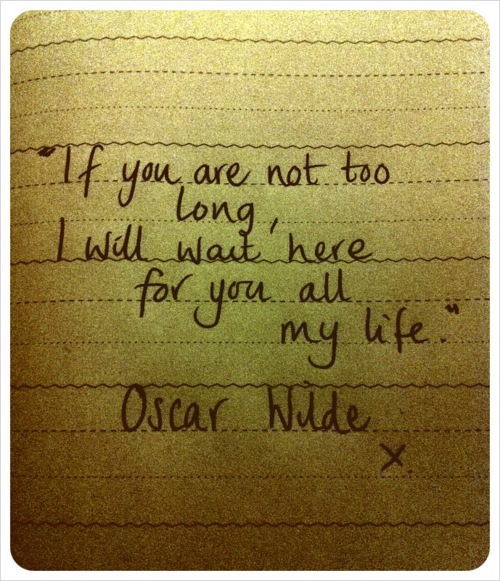 "If you are not too
long,
I will wait here
for you all
my life."
Oscar Wilde
x